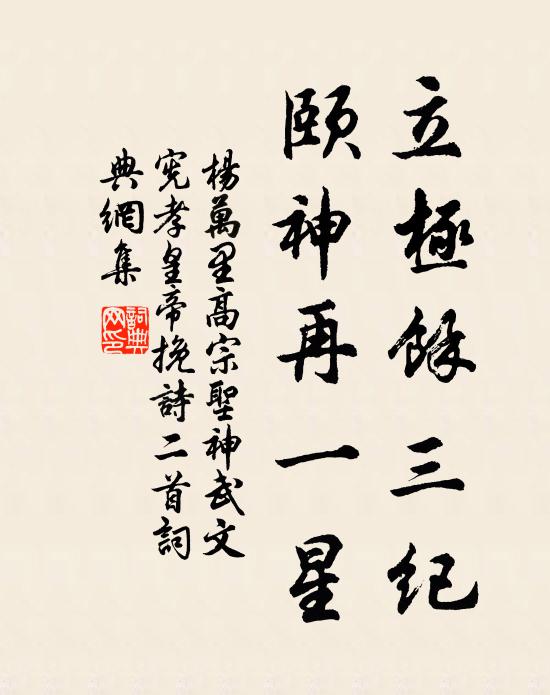 立極餘三紀
頤神再一星
楊萬里高宗聖神武文
憲孝皇帝挽詩二首詞
典網集
詞典网印